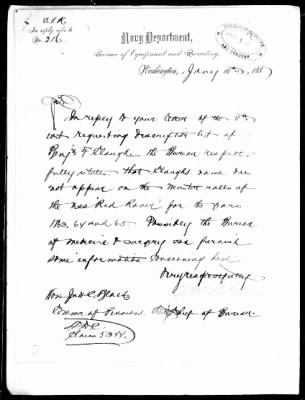 In reply refer to
No. 218
Navy Department,
Bureau of Equipment and Recruiting,
Washington, Jany 10th, 1887
Sir
In reply to your letter of the 4th
inst requesting descriptive list of
Benj. F. Clough the Bureau respect-
fully states that Cloughs name does
not appear on the muster rolls of
the USS "Red Rover" for the years
1863, 64 and 65. Possibly the Bureau
of medicine & surgery can furnish
some information concerning him
Very respectfully
Hon. Jno. C. Black
Commr of Pensions.
Chief of Bureau